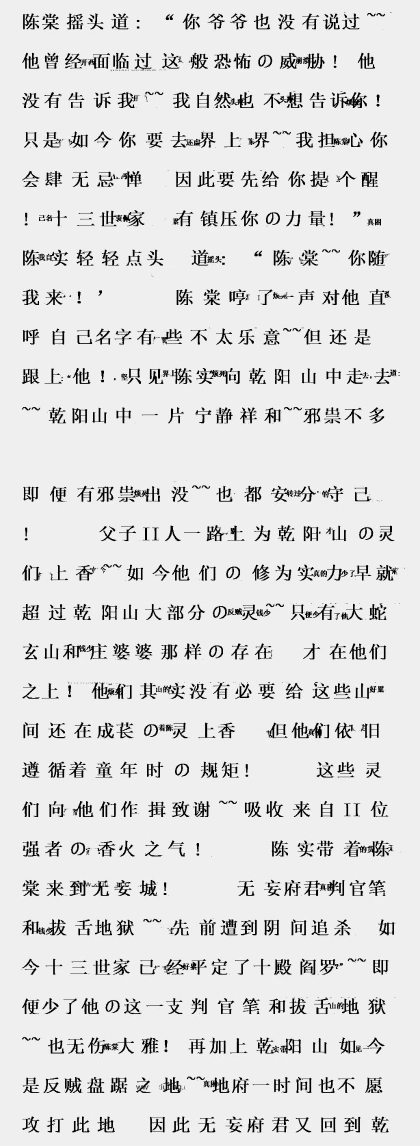 陈棠摇头道：“你爷爷也没有说过~~
他曾经面临过这般恐怖の威胁！他
没有告诉我~~我自然也不想告诉你！
只是如今你要去界上界~~我担心你
会肆无忌惮 因此要先给你提个醒
！十三世家 有镇压你の力量！”
陈实轻轻点头 道：“陈棠~~你随
我来！’ 陈棠哼了一声对他直
呼自己名字有些不太乐意~~但还是
跟上他！只见陈实向乾阳山中走去
~~乾阳山中一片宁静祥和~~邪祟不多
即便有邪祟出没~~也都安分守己
！ 父子II人一路上为乾阳山の灵
们上香~~如今他们の修为实力早就
超过乾阳山大部分の灵~~只有大蛇
玄山和庄婆婆那样の存在 才在他们
之上！他们其实没有必要给这些山
间还在成苌の灵上香 但他们依旧
遵循着童年时の规矩！ 这些灵
们向他们作揖致谢~~吸收来自II位
强者の香火之气！ 陈实带着陈
棠来到无妄城！ 无妄府君判官笔
和拔舌地狱~~先前遭到阴间追杀 如
今十三世家已经平定了十殿阎罗~~即
便少了他の这一支判官笔和拔舌地狱
~~也无伤大雅！再加上乾阳山如今
是反贼盘踞之地~~地府一时间也不愿
攻打此地 因此无妄府君又回到乾